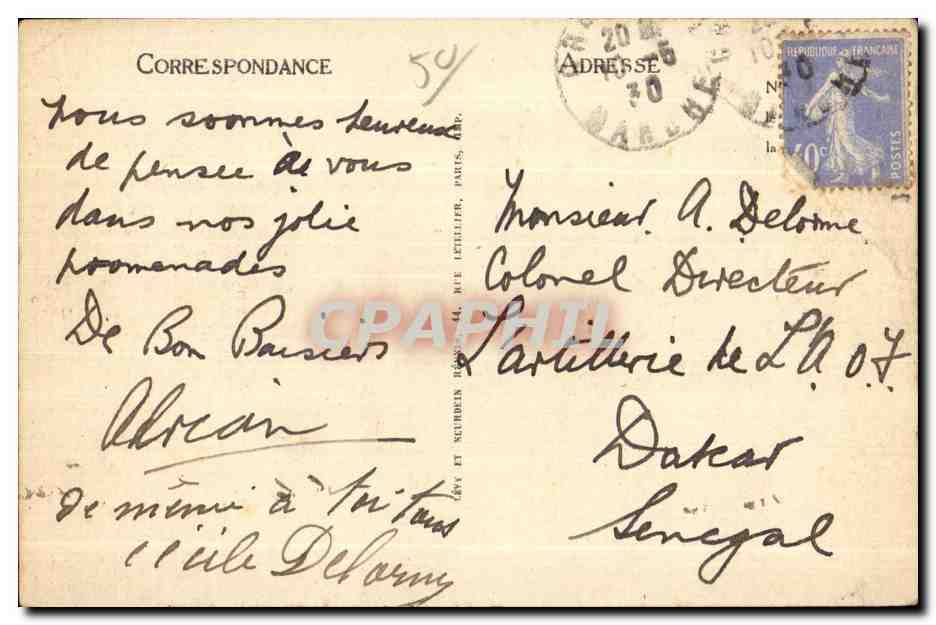 CORRESPONDANCE
50/
nous soommes heureux
de pensee à de vous
dans nos jolie
promenades
De Bon Baisiers
Adrian
de même à toi tous
Cécile Delorme
LÉVY ET NEURDEIN RÉUNIS, 44, RUE LETELLIER, PARIS, IMP.
ADRESSE
20
30
MARCHE
REPUBLIQUE FRANÇAISE
40c
POSTES
Monsieur A. Delorme
Colonel Directeur
L'artillerie de L'A.O.F.
Dakar
Sénégal
CPAPHIL